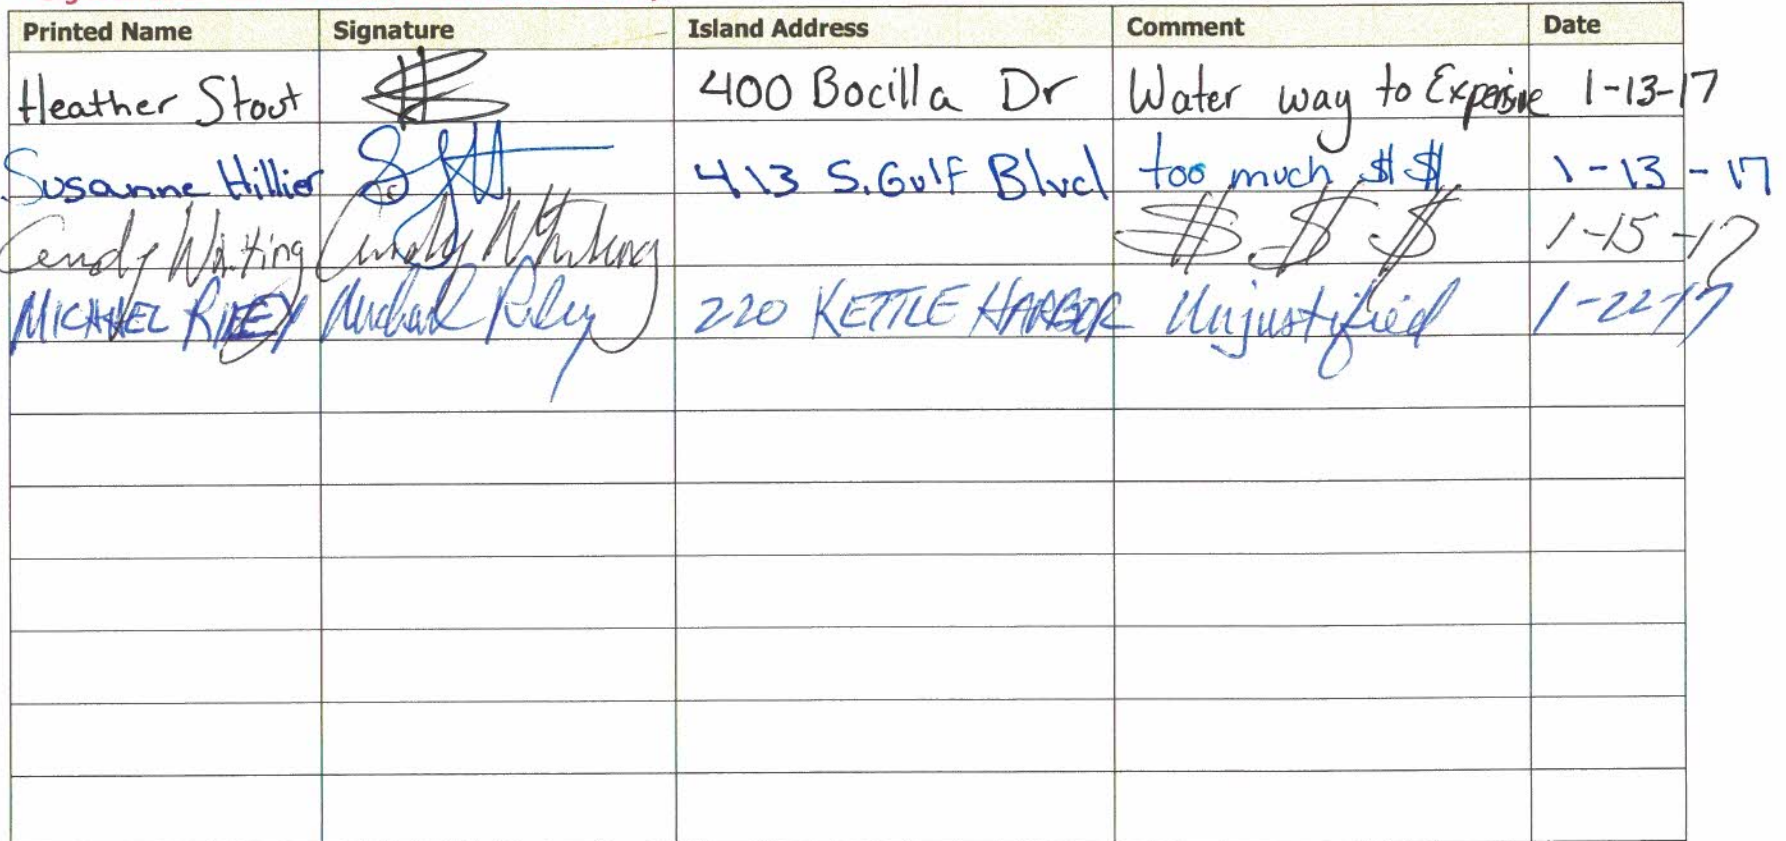 Printed Name Signature Island Address Comment Date
Heather Stout 400 Bocilla Dr Water way to Expensive 1-13-17
Susanne Hillier 413 S. Gulf Blvd too much $ $ 1-13-17
Whiting $ $ $ 1-15-17
MICHAEL RILEY Michael Riley 220 KETTLE HARBOR Unjustified 1-22-17